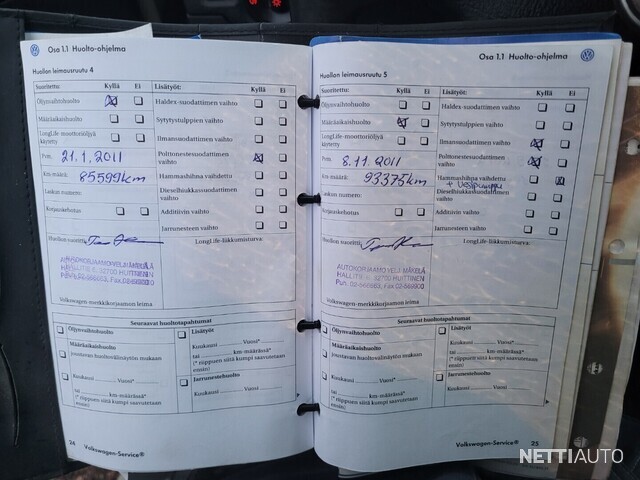 Osa 1.1 Huolto-ohjelma
Huollon leimausruutu 4
Suoritettu: Kyllä Ei Lisätyöt: Kyllä Ei
Öljynvaihtohuolto Haldex-suodattimen vaihto
Määräaikaishuolto Sytytystulppien vaihto
LongLife-moottoriöljyä käytetty Ilmansuodattimen vaihto
Pvm. 21.1.2011 Polttonestesuodattimen vaihto
Km-määrä: 85599km Hammashihna vaihdettu
Laskun numero: Dieselhiukkassuodattimen vaihto
Korjauskehotus Additiivin vaihto
Jarrunesteen vaihto
Huollon suoritti: LongLife-liikkumisturva:
AUTOKORJAAMO VELJ. MÄKELÄ
HALLITIE 4, 32700 HUITTINEN
Volkswagen-merkkikorjaamon leima
Seuraavat huoltotapahtumat
Öljynvaihtohuolto Lisätyöt
Määräaikaishuolto Kuukausi Vuosi*
joustavan huoltovälinäytön mukaan tai km-määrässä*
(* riippuen siitä kumpi saavutetaan ensin)
Kuukausi Vuosi* Jarrunestehuolto
tai km-määrässä* Kuukausi Vuosi
(* riippuen siitä kumpi saavutetaan ensin)
24 Volkswagen-Service®
Osa 1.1 Huolto-ohjelma
Huollon leimausruutu 5
Suoritettu: Kyllä Ei Lisätyöt: Kyllä Ei
Öljynvaihtohuolto Haldex-suodattimen vaihto
Määräaikaishuolto Sytytystulppien vaihto
LongLife-moottoriöljyä käytetty Ilmansuodattimen vaihto
Pvm. 8.11.2011 Polttonestesuodattimen vaihto
Km-määrä: 93375km Hammashihna vaihdettu
+ vesipumppu
Laskun numero: Dieselhiukkassuodattimen vaihto
Korjauskehotus Additiivin vaihto
Jarrunesteen vaihto
Huollon suoritti: LongLife-liikkumisturva:
AUTOKORJAAMO VELJ. MÄKELÄ
HALLITIE 4, 32700 HUITTINEN
Volkswagen-merkkikorjaamon leima
Seuraavat huoltotapahtumat
Öljynvaihtohuolto Lisätyöt
Määräaikaishuolto Kuukausi Vuosi*
joustavan huoltovälinäytön mukaan tai km-määrässä*
(* riippuen siitä kumpi saavutetaan ensin)
Kuukausi Vuosi* Jarrunestehuolto
tai km-määrässä* Kuukausi Vuosi
(* riippuen siitä kumpi saavutetaan ensin)
Volkswagen-Service® 25
NETTIAUTO